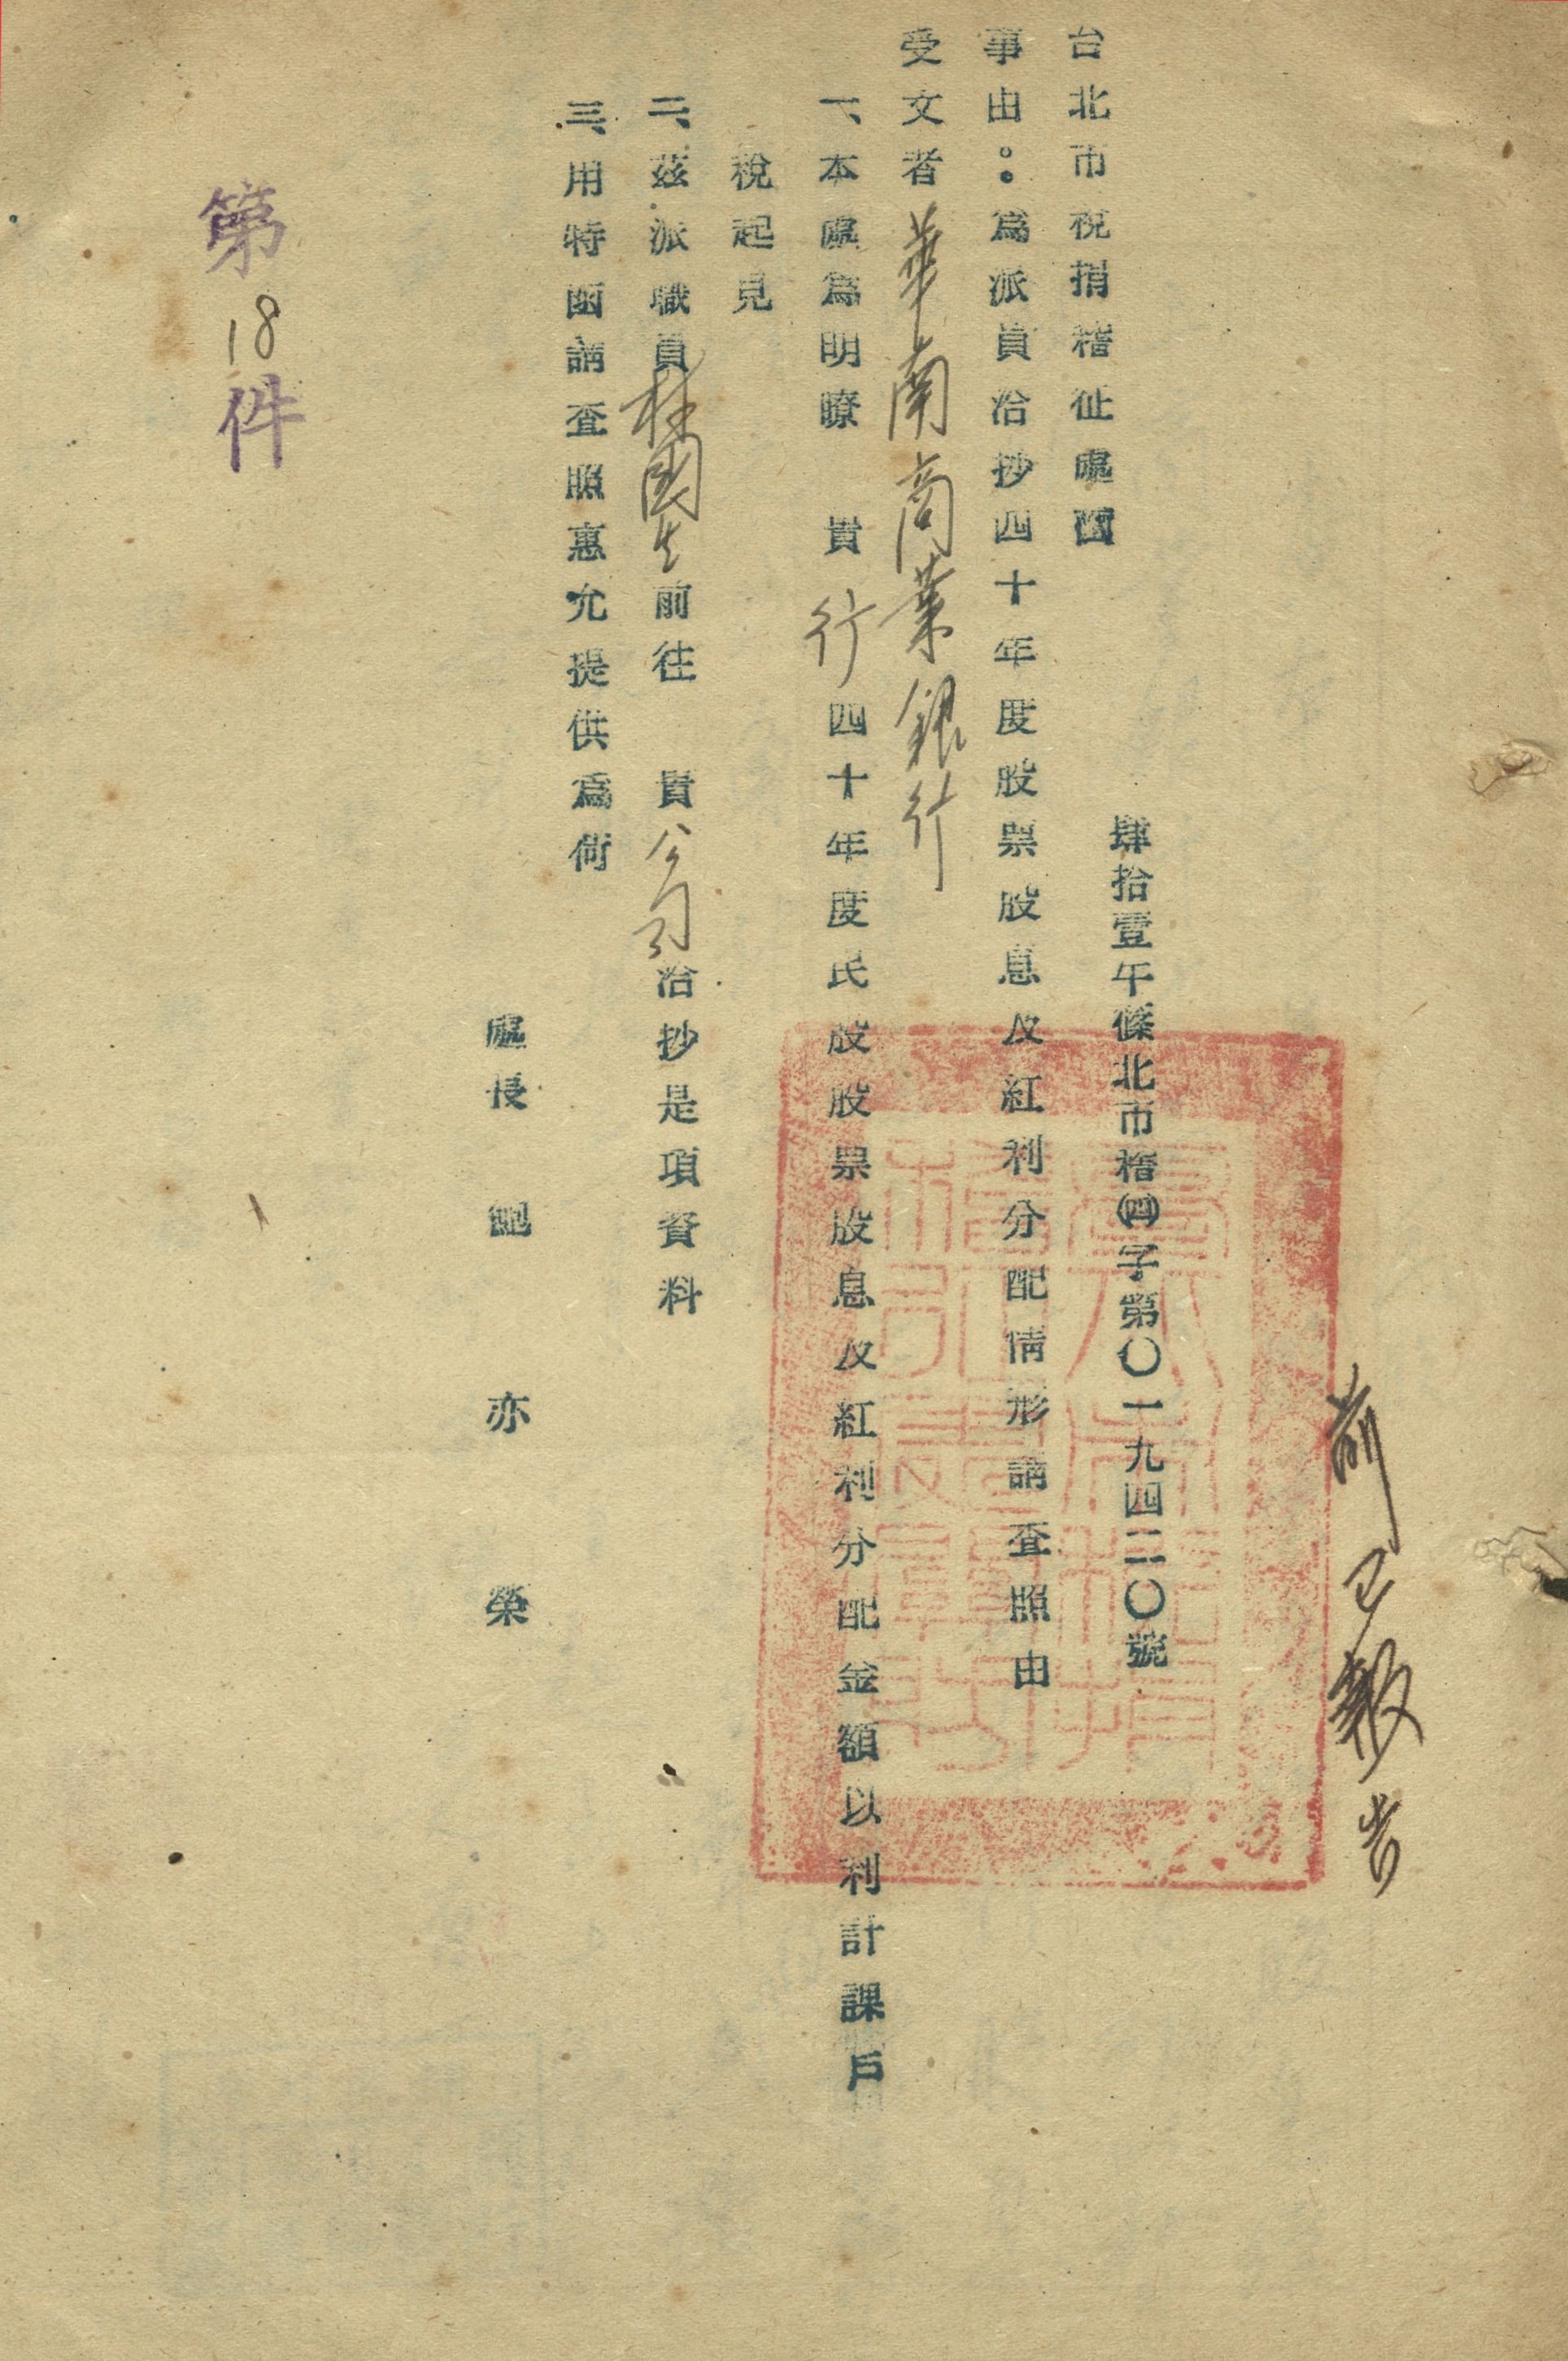 前已報告
台北市稅捐稽征處函
肆拾壹午篠北市稽㈣子第〇一九四二〇號
事由：為派員洽抄四十年度股票股息及紅利分配情形請查照由
受文者華南商業銀行
一、本處為明瞭　貴行四十年度民股股票股息及紅利分配金額以利計課戶
稅起見
二、茲派職員杜國生前往　貴公司洽抄是項資料
三、用特函請查照惠允提供為荷
處長　亦榮
第18件